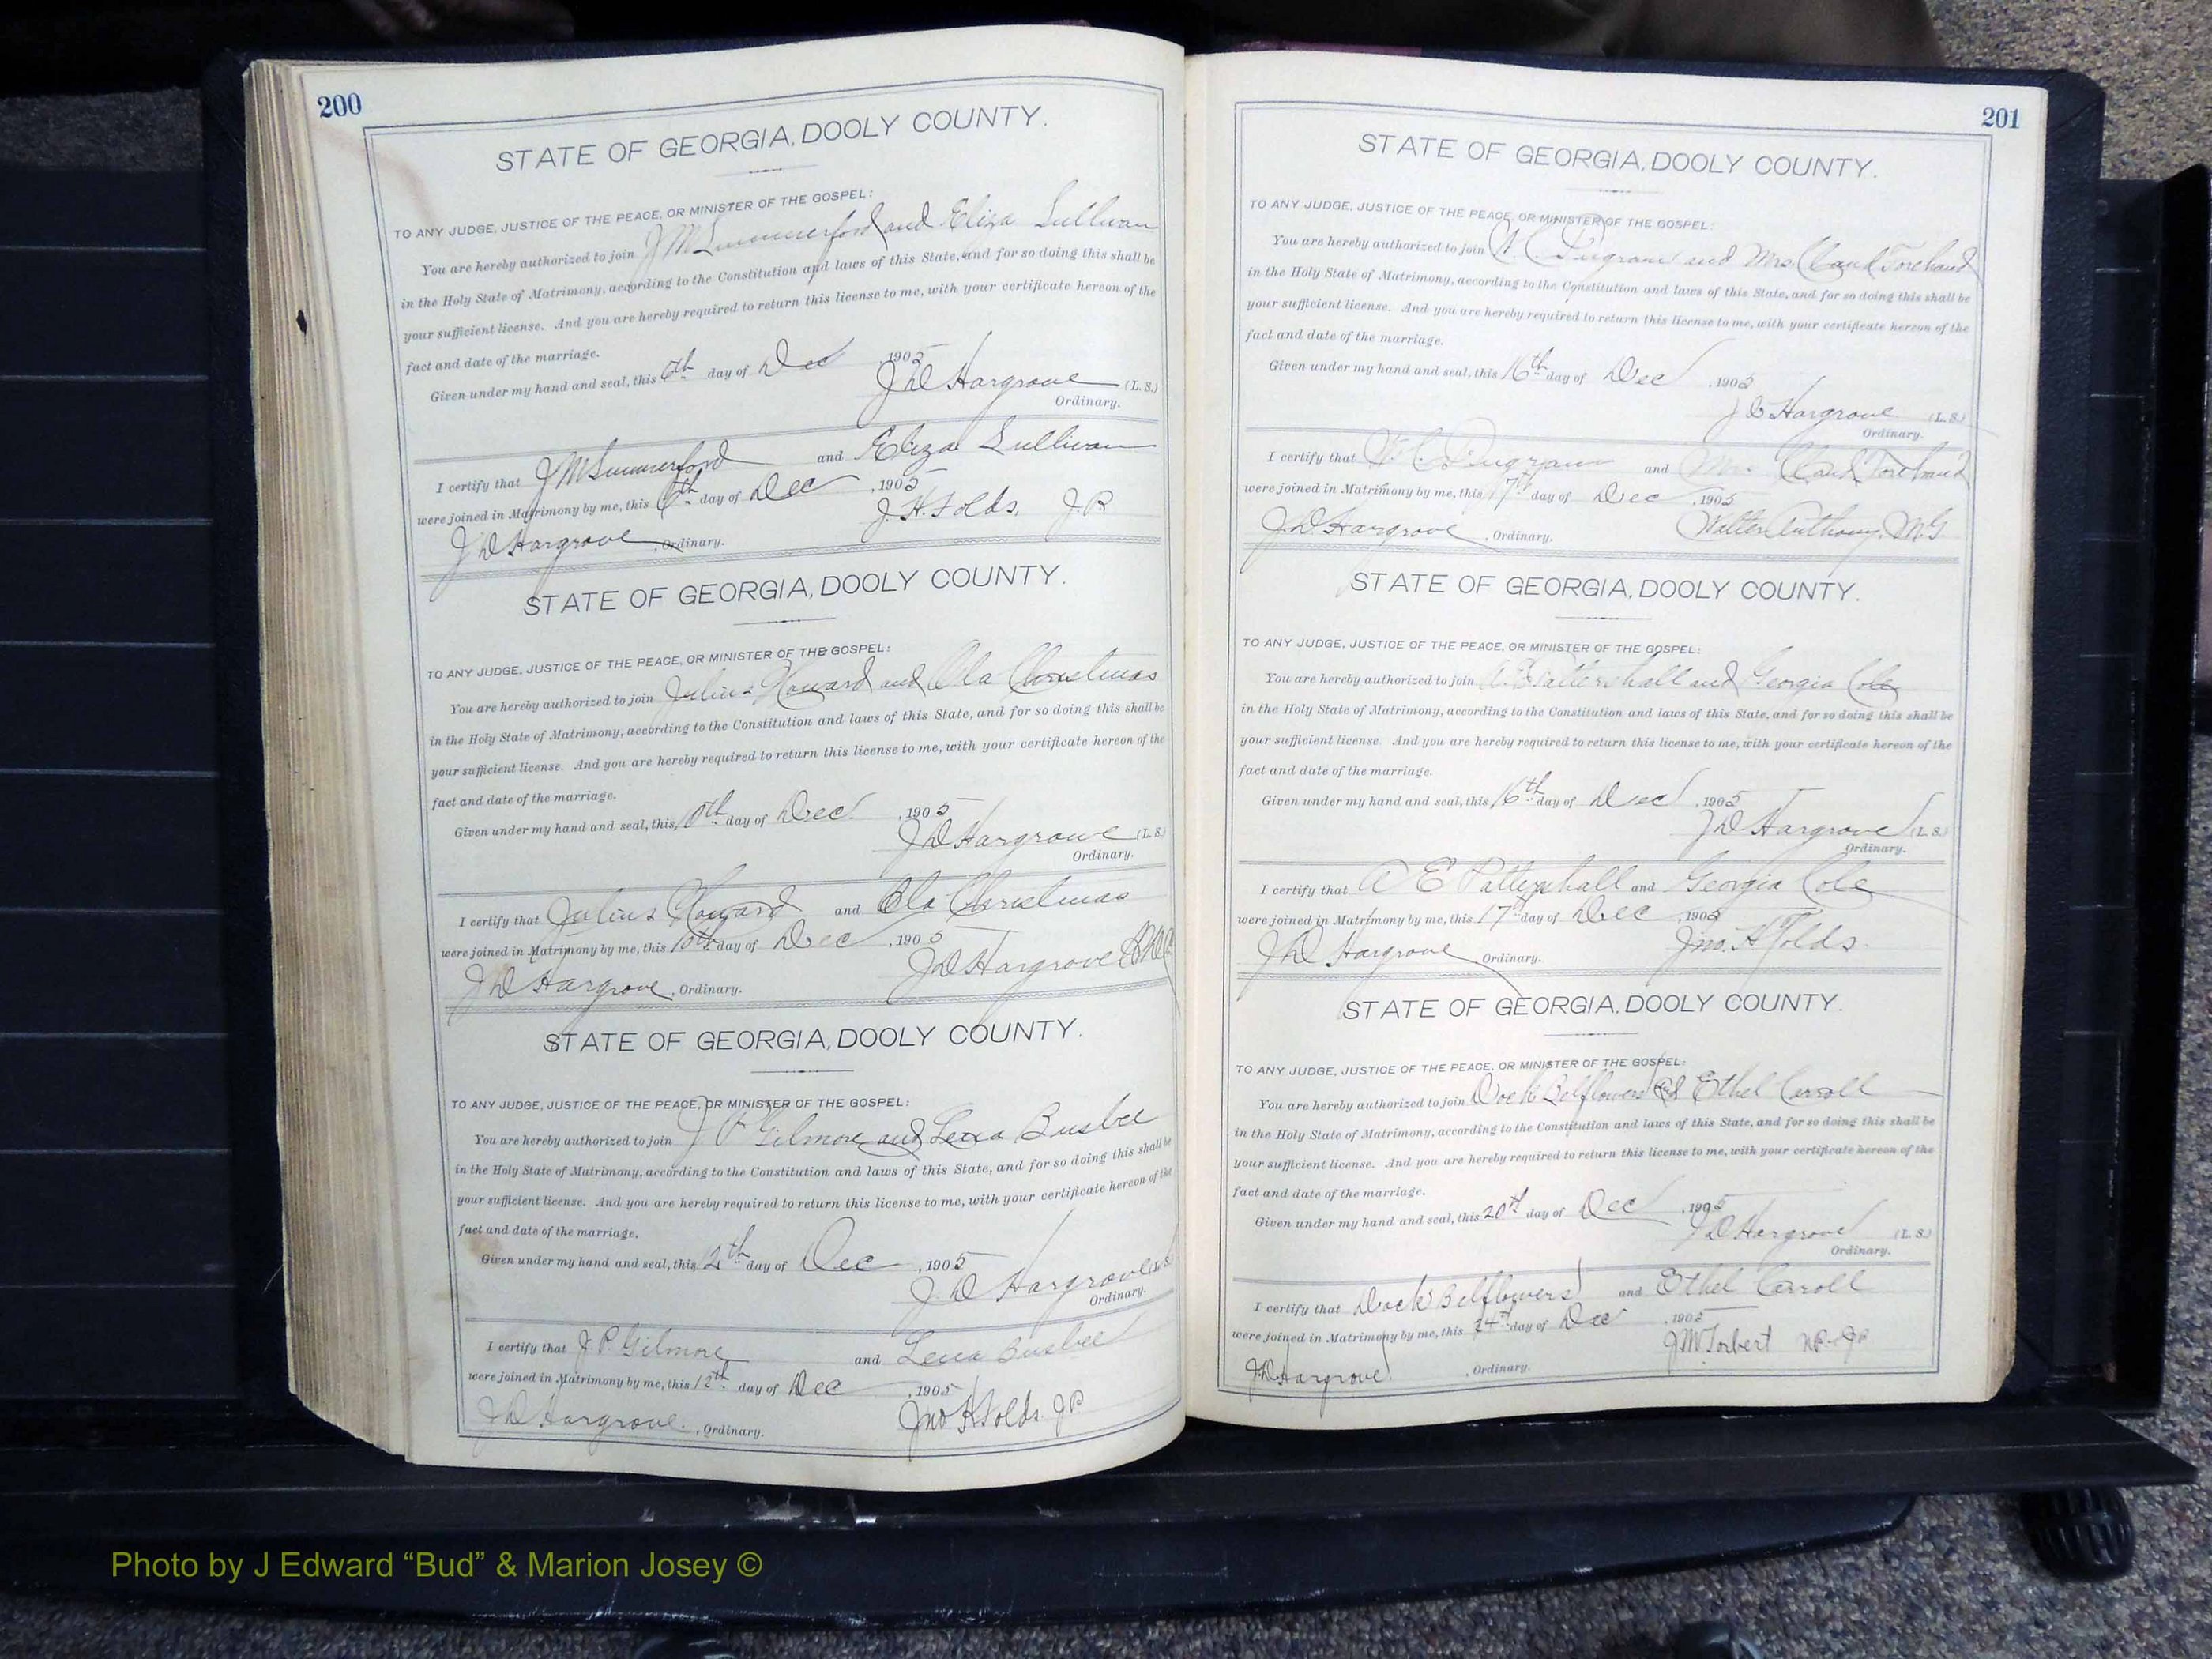 200
STATE OF GEORGIA, DOOLY COUNTY.
TO ANY JUDGE, JUSTICE OF THE PEACE, OR MINISTER OF THE GOSPEL:
You are hereby authorized to join J M Summerford and Eliza Sullivan
in the Holy State of Matrimony, according to the Constitution and laws of this State, and for so doing this shall be
your sufficient license. And you are hereby required to return this license to me, with your certificate hereon of the
fact and date of the marriage.
Given under my hand and seal, this 6th day of Dec , 1905
J D Hargrove (L. S.)
Ordinary.
I certify that J M Summerford and Eliza Sullivan
were joined in Matrimony by me, this 6th day of Dec , 1905
J. H. Folds, J. P.
J D Hargrove , Ordinary.
STATE OF GEORGIA, DOOLY COUNTY.
TO ANY JUDGE, JUSTICE OF THE PEACE, OR MINISTER OF THE GOSPEL:
You are hereby authorized to join Julius Howard and Ola Christmas
in the Holy State of Matrimony, according to the Constitution and laws of this State, and for so doing this shall be
your sufficient license. And you are hereby required to return this license to me, with your certificate hereon of the
fact and date of the marriage.
Given under my hand and seal, this 10th day of Dec. , 1905
J D Hargrove (L. S.)
Ordinary.
I certify that Julius Howard and Ola Christmas
were joined in Matrimony by me, this 10th day of Dec , 1905
J D Hargrove
J D Hargrove , Ordinary.
STATE OF GEORGIA, DOOLY COUNTY.
TO ANY JUDGE, JUSTICE OF THE PEACE, OR MINISTER OF THE GOSPEL:
You are hereby authorized to join J P Gilmore and Lena Busbee
in the Holy State of Matrimony, according to the Constitution and laws of this State, and for so doing this shall be
your sufficient license. And you are hereby required to return this license to me, with your certificate hereon of the
fact and date of the marriage.
Given under my hand and seal, this 12th day of Dec , 1905
J. D Hargrove (L. S.)
Ordinary.
I certify that J. P. Gilmore and Lena Busbee
were joined in Matrimony by me, this 12th day of Dec , 1905
Jno H Folds JP
J D Hargrove. , Ordinary.
201
STATE OF GEORGIA, DOOLY COUNTY.
TO ANY JUDGE, JUSTICE OF THE PEACE, OR MINISTER OF THE GOSPEL:
You are hereby authorized to join C and Mrs Claud Forehand
in the Holy State of Matrimony, according to the Constitution and laws of this State, and for so doing this shall be
your sufficient license. And you are hereby required to return this license to me, with your certificate hereon of the
fact and date of the marriage.
Given under my hand and seal, this 16th day of Dec , 1905
J D Hargrove (L. S.)
Ordinary.
I certify that C and Mrs Claud Forehand
were joined in Matrimony by me, this 17th day of Dec , 1905
Walter Anthony, M. G.
J. D. Hargrove , Ordinary.
STATE OF GEORGIA, DOOLY COUNTY.
TO ANY JUDGE, JUSTICE OF THE PEACE, OR MINISTER OF THE GOSPEL:
You are hereby authorized to join A E Pattershall and Georgia Cole
in the Holy State of Matrimony, according to the Constitution and laws of this State, and for so doing this shall be
your sufficient license. And you are hereby required to return this license to me, with your certificate hereon of the
fact and date of the marriage.
Given under my hand and seal, this 16th day of Dec , 1905
J D Hargrove (L. S.)
Ordinary.
I certify that A E Pattershall and Georgia Cole
were joined in Matrimony by me, this 17th day of Dec , 1905
Jno. H Folds.
J D Hargrove Ordinary.
STATE OF GEORGIA, DOOLY COUNTY.
TO ANY JUDGE, JUSTICE OF THE PEACE, OR MINISTER OF THE GOSPEL:
You are hereby authorized to join Dock Belflowers and Ethel Carroll
in the Holy State of Matrimony, according to the Constitution and laws of this State, and for so doing this shall be
your sufficient license. And you are hereby required to return this license to me, with your certificate hereon of the
fact and date of the marriage.
Given under my hand and seal, this 20th day of Dec , 1905
J D Hargrove (L. S.)
Ordinary.
I certify that Dock Belflowers and Ethel Carroll
were joined in Matrimony by me, this 24th day of Dec , 1905
J M Torbert NP & JP
J. D. Hargrove , Ordinary.
Photo by J Edward “Bud” & Marion Josey ©